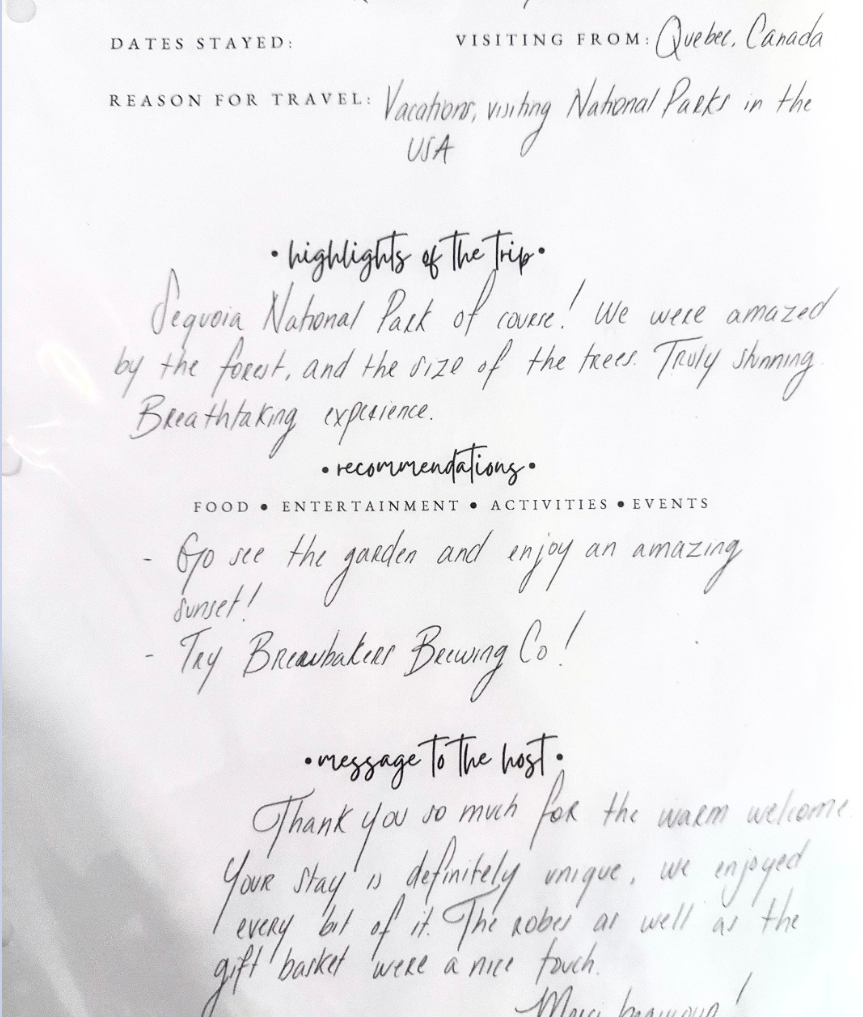 DATES STAYED: VISITING FROM: Quebec, Canada
REASON FOR TRAVEL: Vacations, visiting National Parks in the
USA
• highlights of the trip •
Sequoia National Park of course! We were amazed
by the forest, and the size of the trees. Truly stunning
Breathtaking experience.
• recommendations •
FOOD • ENTERTAINMENT • ACTIVITIES • EVENTS
- Go see the garden and enjoy an amazing
sunset!
- Try Brewbakers Brewing Co!
• message to the host •
Thank you so much for the warm welcome
Your stay is definitely unique, we enjoyed
every bit of it. The robes as well as the
gift basket were a nice touch.
Merci beaucoup!